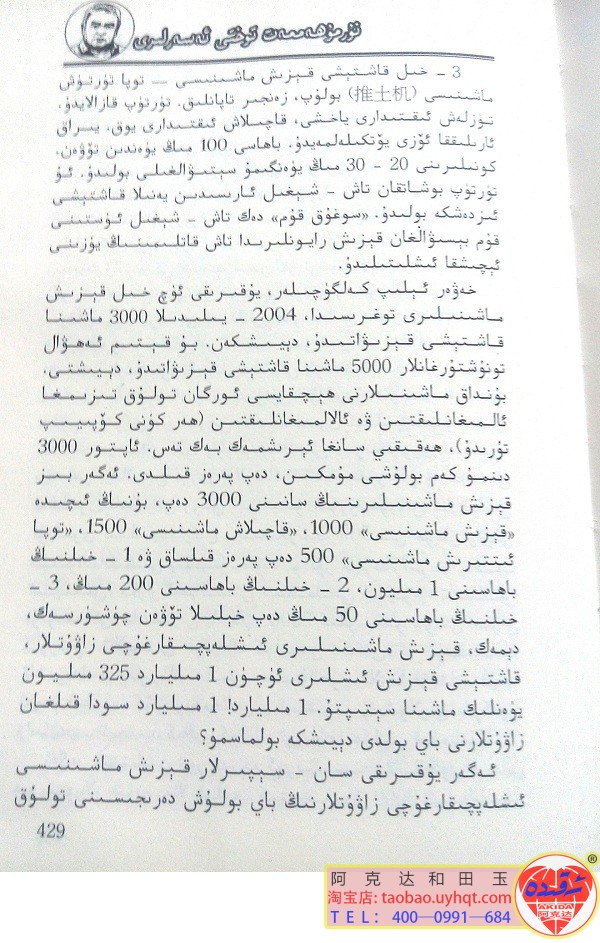 نۇرمۇھەممەت توختى ئەسەرلىرى
3 - خىل قاشتېشى قېزىش ماشىنىسى — توپا تۈرتۈش
ماشىنىسى (推土机) بولۇپ، زەنجىر تاپانلىق. تۈرتۈپ قازالايدۇ.
تۈزلەش ئىقتىدارى ياخشى، قاچىلاش ئىقتىدارى يوق. يىراق
ئارىلىققا ئۆزى يۆتكىلەلمەيدۇ. باھاسى 100 مىڭ يۈەندىن تۆۋەن.
كونىلىرىنى 20 - 30 مىڭ يۈەنگىمۇ سېتىۋالغىلى بولىدۇ. ئۇ
تۈرتۈپ بوشاتقان تاش - شېغىل ئارىسىدىن يەنىلا قاشتېشى
ئىزدەشكە بولىدۇ. «سوغۇق قۇم» دەك تاش - شېغىل ئۈستىنى
قۇم بېسىۋالغان قېزىش رايونلىرىدا تاش قاتلىمىنىڭ يۈزىنى
ئېچىشقا ئىشلىتىلىدۇ.
خەۋەر ئېلىپ كەلگۈچىلەر، يۇقىرىقى ئۈچ خىل قېزىش
ماشىنىلىرى توغرىسىدا، 2004 - يىلىدىلا 3000 ماشىنا
قاشتېشى قېزىۋاتىدۇ، دېيىشكەن. بۇ قېتىم ئەھۋال
تونۇشتۇرغانلار 5000 ماشىنا قاشتېشى قېزىۋاتىدۇ، دېيىشتى.
بۇنداق ماشىنىلارنى ھېچقايسى ئورگان تولۇق تىزىمغا
ئالمىغانلىقتىن ۋە ئالالمىغانلىقتىن (ھەر كۈنى كۆپىيىپ
تۇرىدۇ)، ھەقىقىي سانغا ئېرىشمەك بەك تەس. ئاپتور 3000
دىنمۇ كەم بولۇشى مۇمكىن، دەپ پەرەز قىلدى. ئەگەر بىز
قېزىش ماشىنىلىرىنىڭ سانىنى 3000 دەپ، بۇنىڭ ئىچىدە
«قېزىش ماشىنىسى» 1000، «قاچىلاش ماشىنىسى» 1500، «توپا
ئىتتىرىش ماشىنىسى» 500 دەپ پەرەز قىلساق ۋە 1 - خىلنىڭ
باھاسىنى 1 مىليون، 2 - خىلنىڭ باھاسىنى 200 مىڭ، 3 -
خىلنىڭ باھاسىنى 50 مىڭ دەپ خېلىلا تۆۋەن چۈشۈرسەك،
دېمەك، قېزىش ماشىنىلىرى ئىشلەپچىقارغۇچى زاۋۇتلار،
قاشتېشى قېزىش ئىشلىرى ئۈچۈن 1 مىليارد 325 مىليون
يۈەنلىك ماشىنا سېتىپتۇ. 1 مىليارد! 1 مىليارد سودا قىلغان
زاۋۇتلارنى باي بولدى دېيىشكە بولماسمۇ؟
ئەگەر يۇقىرىقى سان - سىپىرلار قېزىش ماشىنىسى
ئىشلەپچىقارغۇچى زاۋۇتلارنىڭ باي بولۇش دەرىجىسىنى تولۇق
429
阿克达和田玉
淘宝店:taobao.uyhqt.com
TEL：400—0991—684
ئەقىدە
AKIDA
阿克达
®